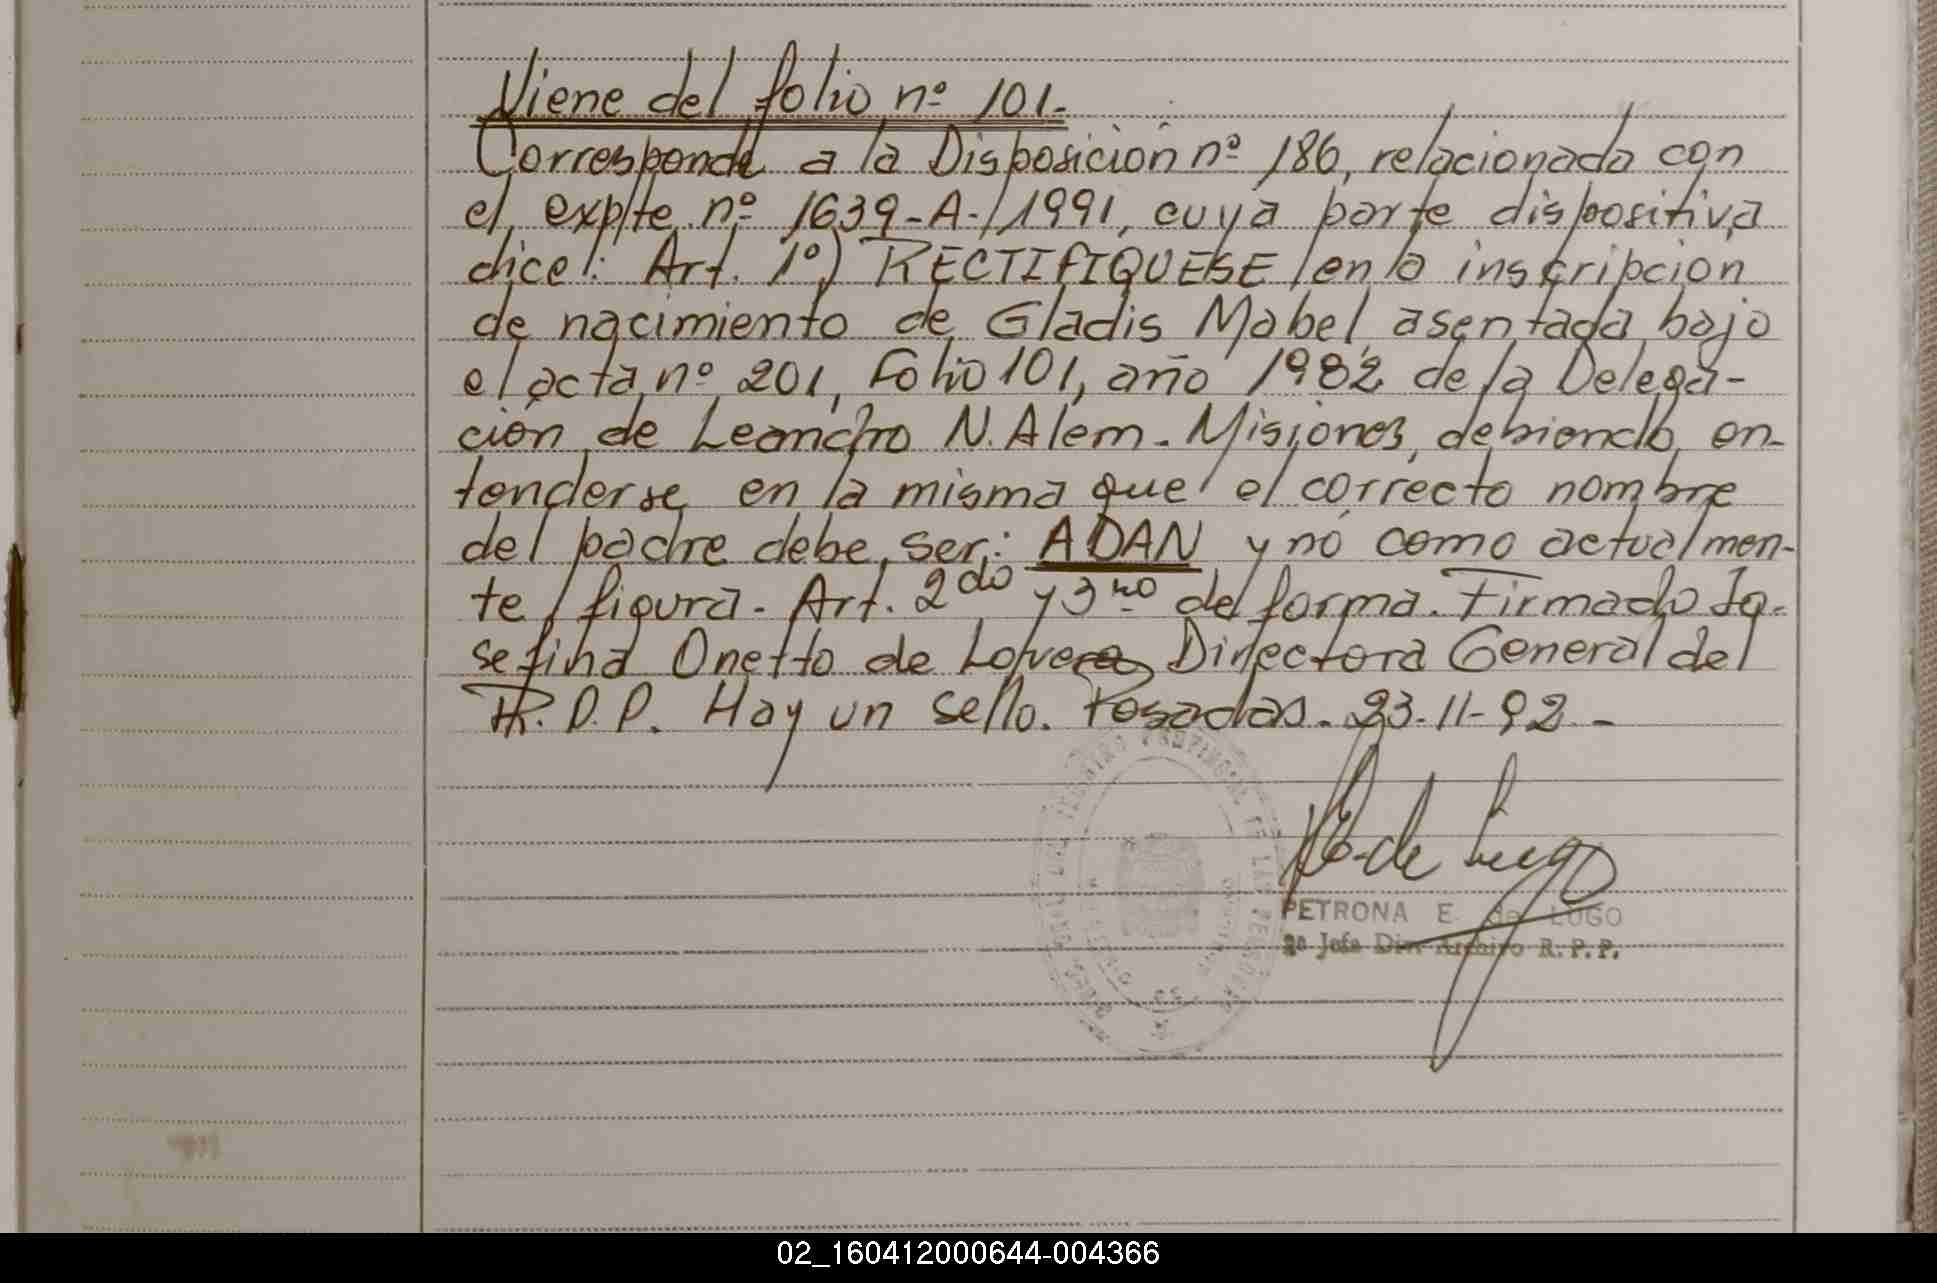 Viene del folio nº 101.-
Corresponde a la Disposición nº 186, relacionada con
el expte. nº 1639-A-/1991, cuya parte dispositiva
dice: Art. 1º) RECTIFIQUESE en la inscripcion
de nacimiento de Gladis Mabel asentada bajo
el acta nº 201, Folio 101, año 1982 de la Delega-
ción de Leandro N. Alem - Misiones, debiendo en-
tenderse en la misma que el correcto nombre
del padre debe ser: ADAN y nó como actualmen-
te figura. Art. 2do y 3ro de forma. Firmado Jo-
sefina Onetto de Directora General del
R.P.P. Hay un sello. Posadas. 23-11-92 -
de Lugo
PETRONA E. de LUGO
2ª Jefa Div. Archivo R.P.P.
REGISTRO PROVINCIAL DE LAS PERSONAS
02_160412000644-004366